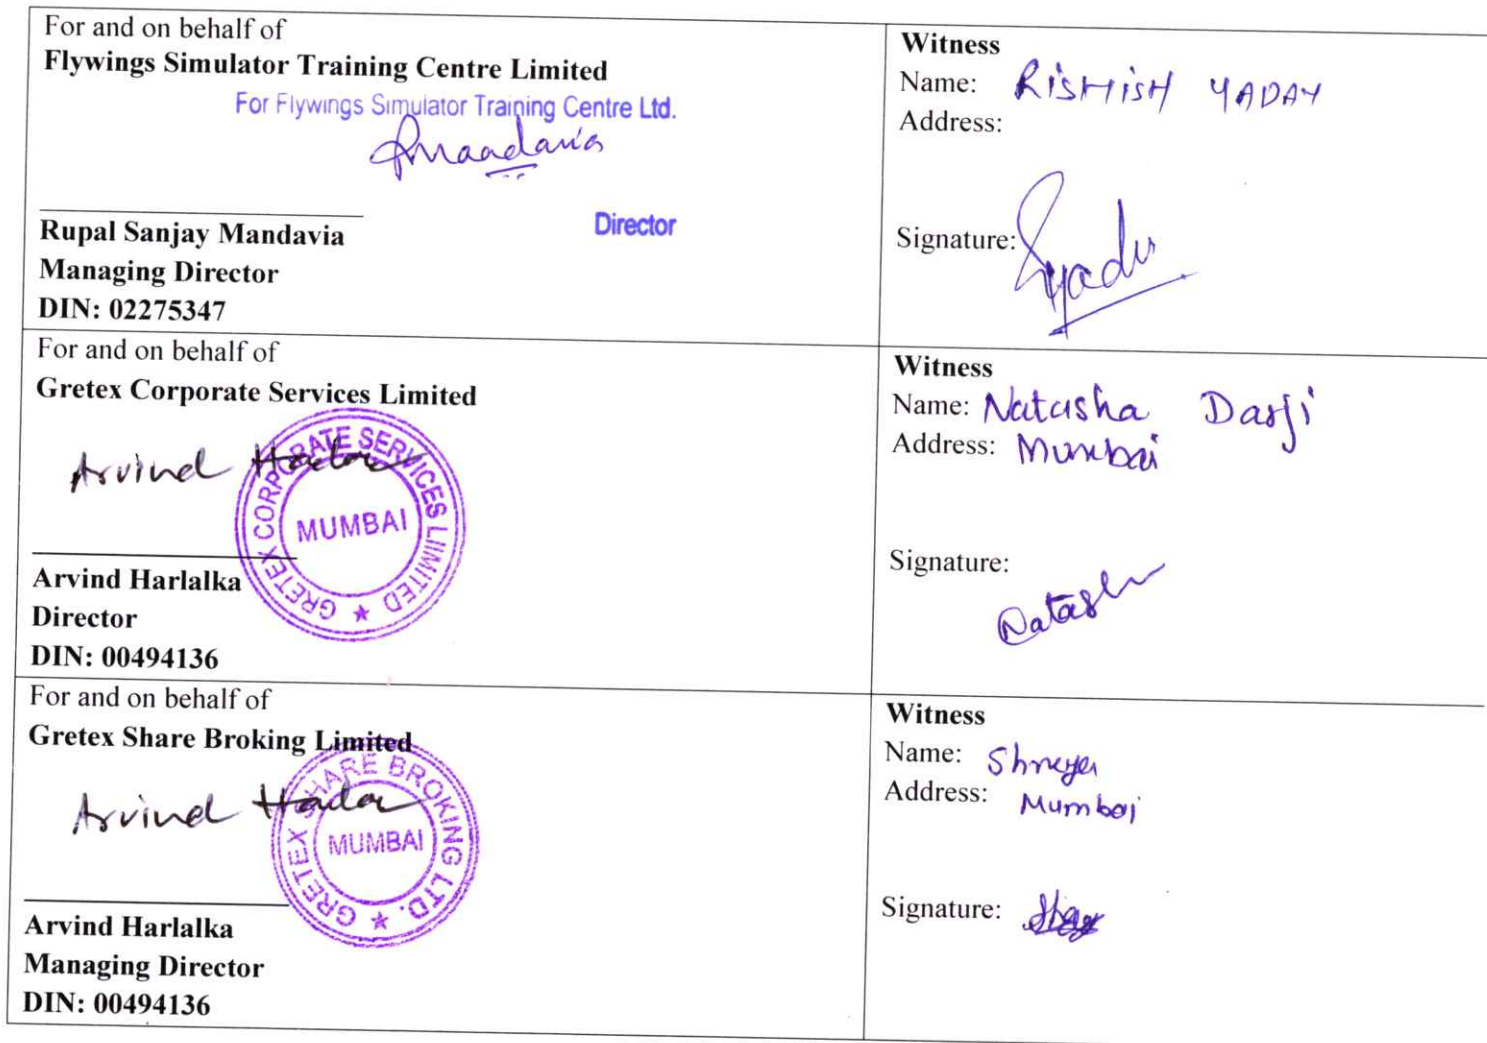 For and on behalf of
Flywings Simulator Training Centre Limited
For Flywings Simulator Training Centre Ltd.
Director
Rupal Sanjay Mandavia
Managing Director
DIN: 02275347
Witness
Name: RISHISH YADAV
Address:
Signature:
For and on behalf of
Gretex Corporate Services Limited
Arvind
GRETEX CORPORATE SERVICES LIIMITED ★
MUMBAI
Arvind Harlalka
Director
DIN: 00494136
Witness
Name: Natasha Darji
Address: Mumbai
Signature:
Natash
For and on behalf of
Gretex Share Broking Limited
Arvind
GRETEX SHARE BROKING LTD. ★
MUMBAI
Arvind Harlalka
Managing Director
DIN: 00494136
Witness
Name: Shreya
Address: Mumbai
Signature: